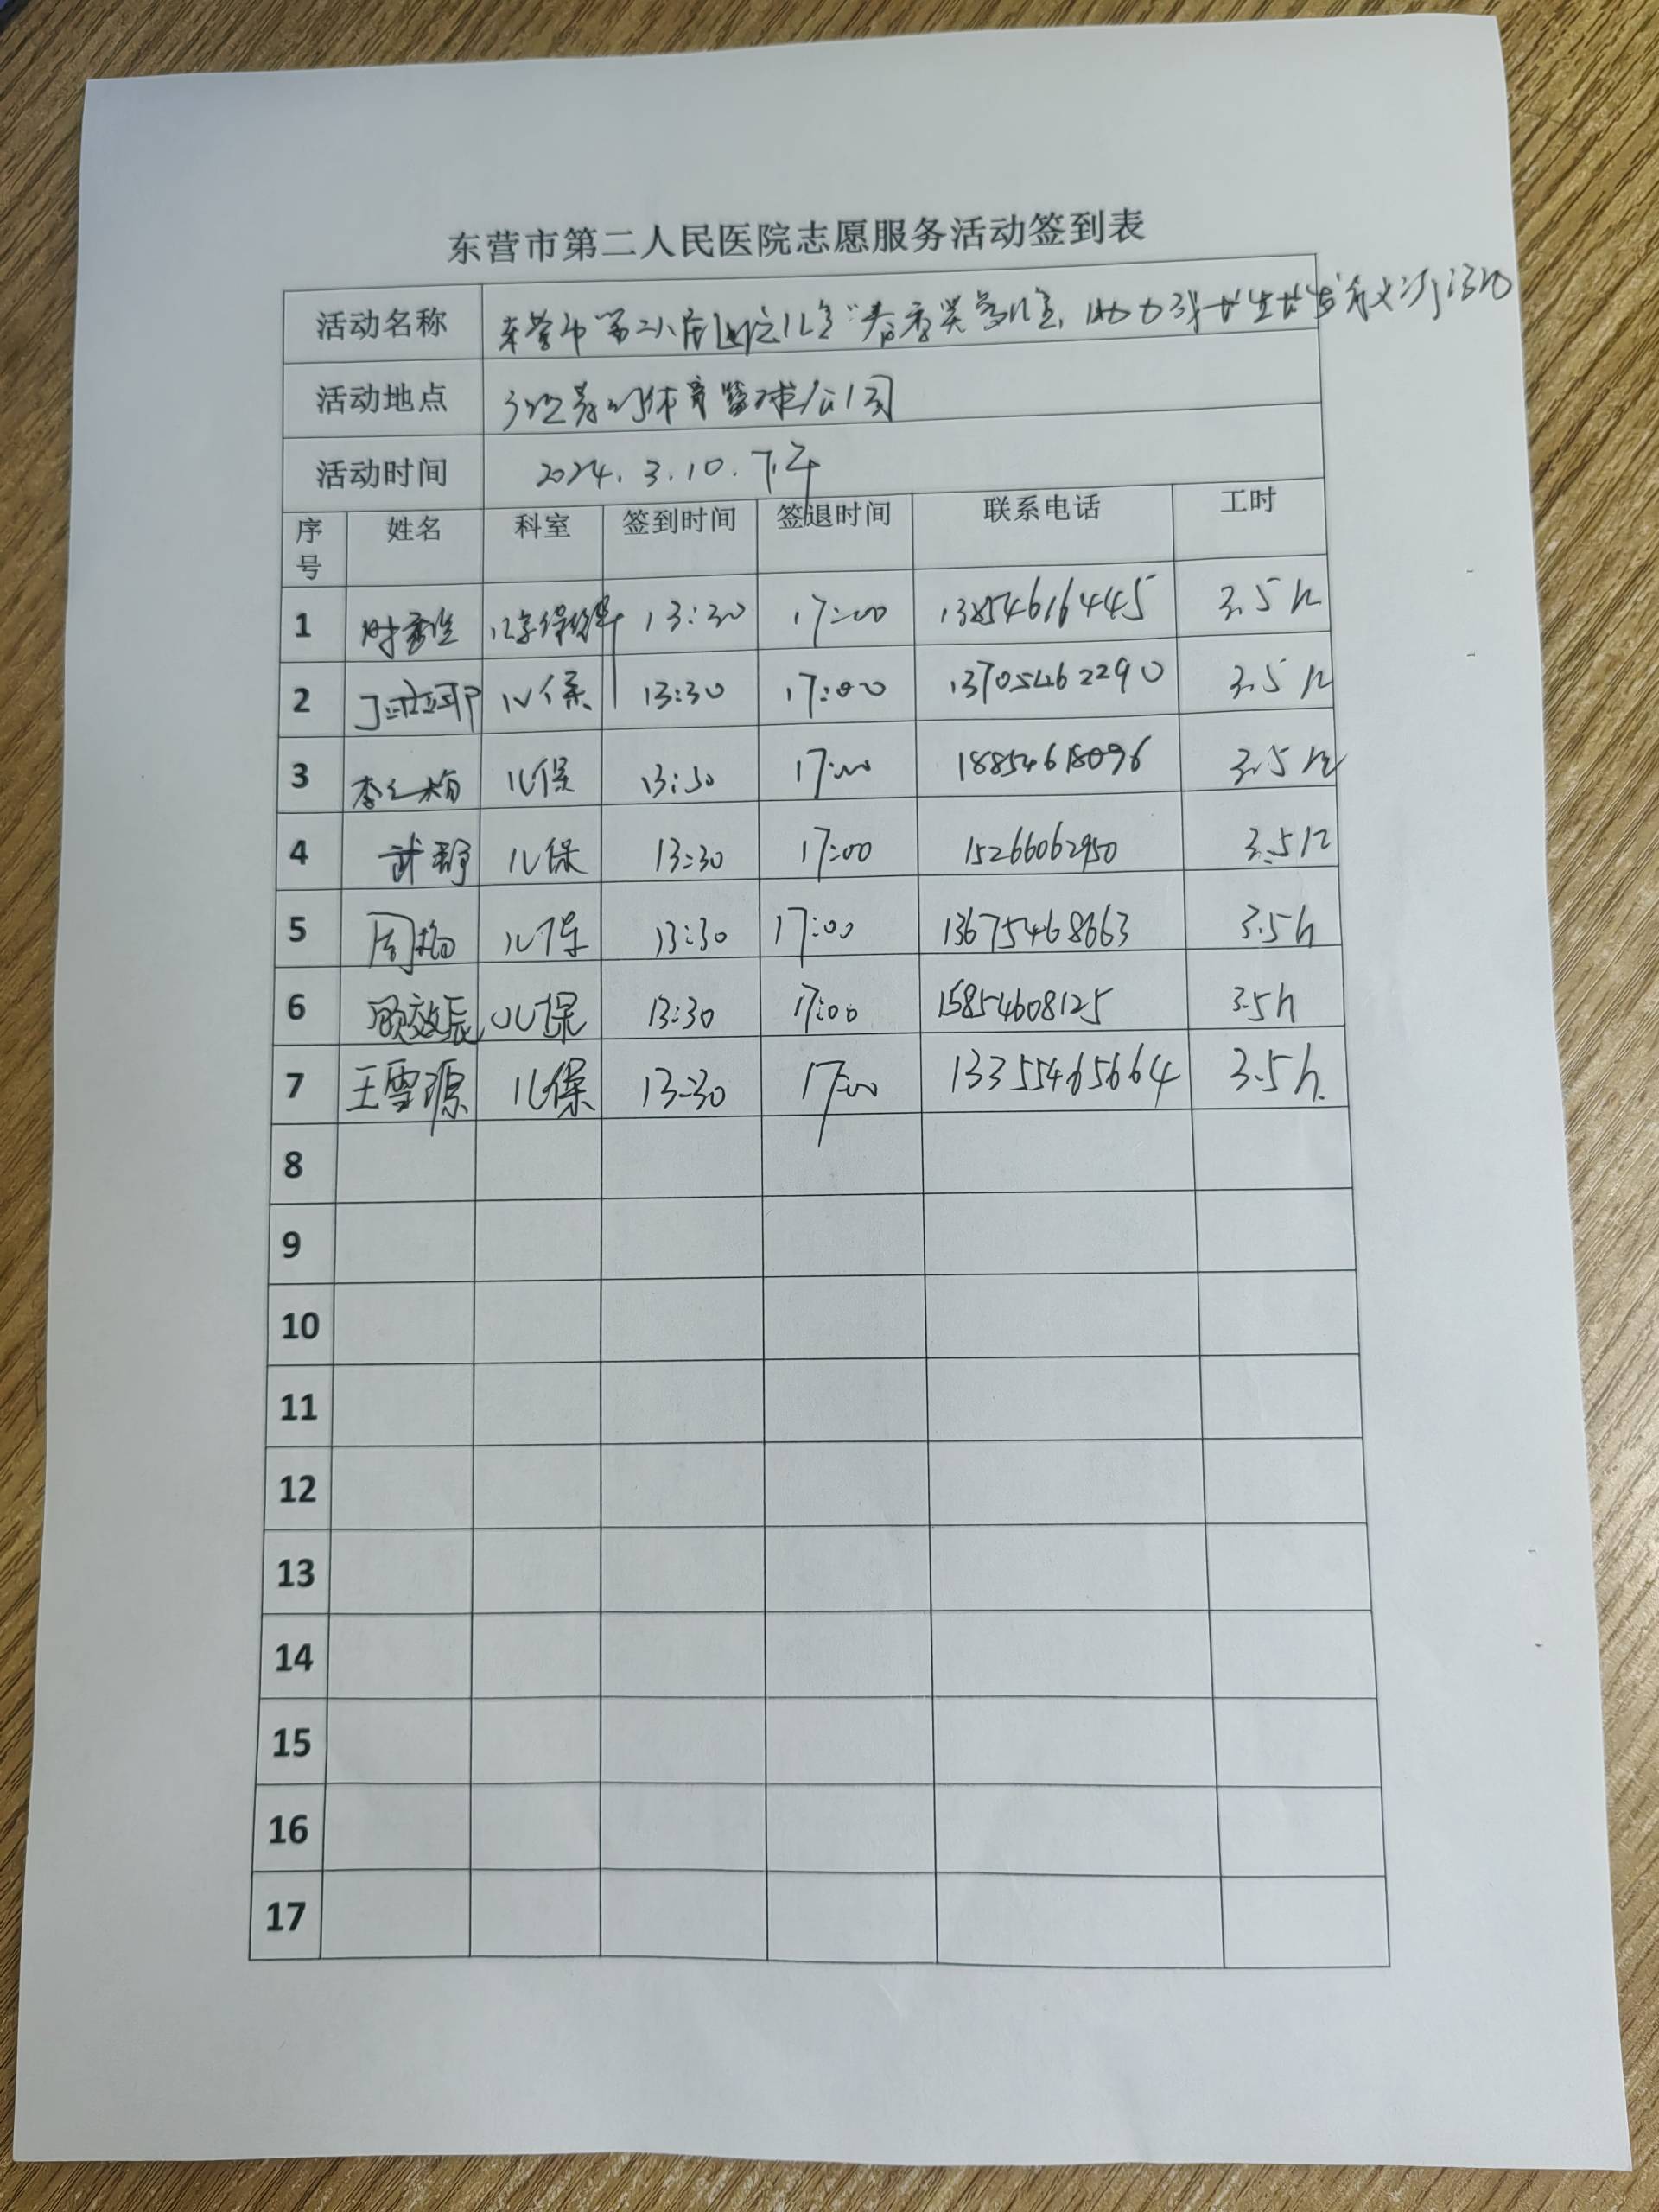 东营市第二人民医院志愿服务活动签到表
活动名称 东营市第二人民医院
活动地点 体育篮球公园
活动时间 2024.3.10.下午
序号 姓名 科室 签到时间 签退时间 联系电话 工时
1 儿童保健 13:30 17:00 13854616445 3.5h
2 儿保 13:30 17:00 13705462290 3.5h
3 儿保 13:30 17:00 18854618096 3.5h
4 武静 儿保 13:30 17:00 15266062950 3.5h
5 儿保 13:30 17:00 13675468663 3.5h
6 儿保 13:30 17:00 15854608125 3.5h
7 王雪源 儿保 13:30 17:00 13355465664 3.5h.
8
9
10
11
12
13
14
15
16
17